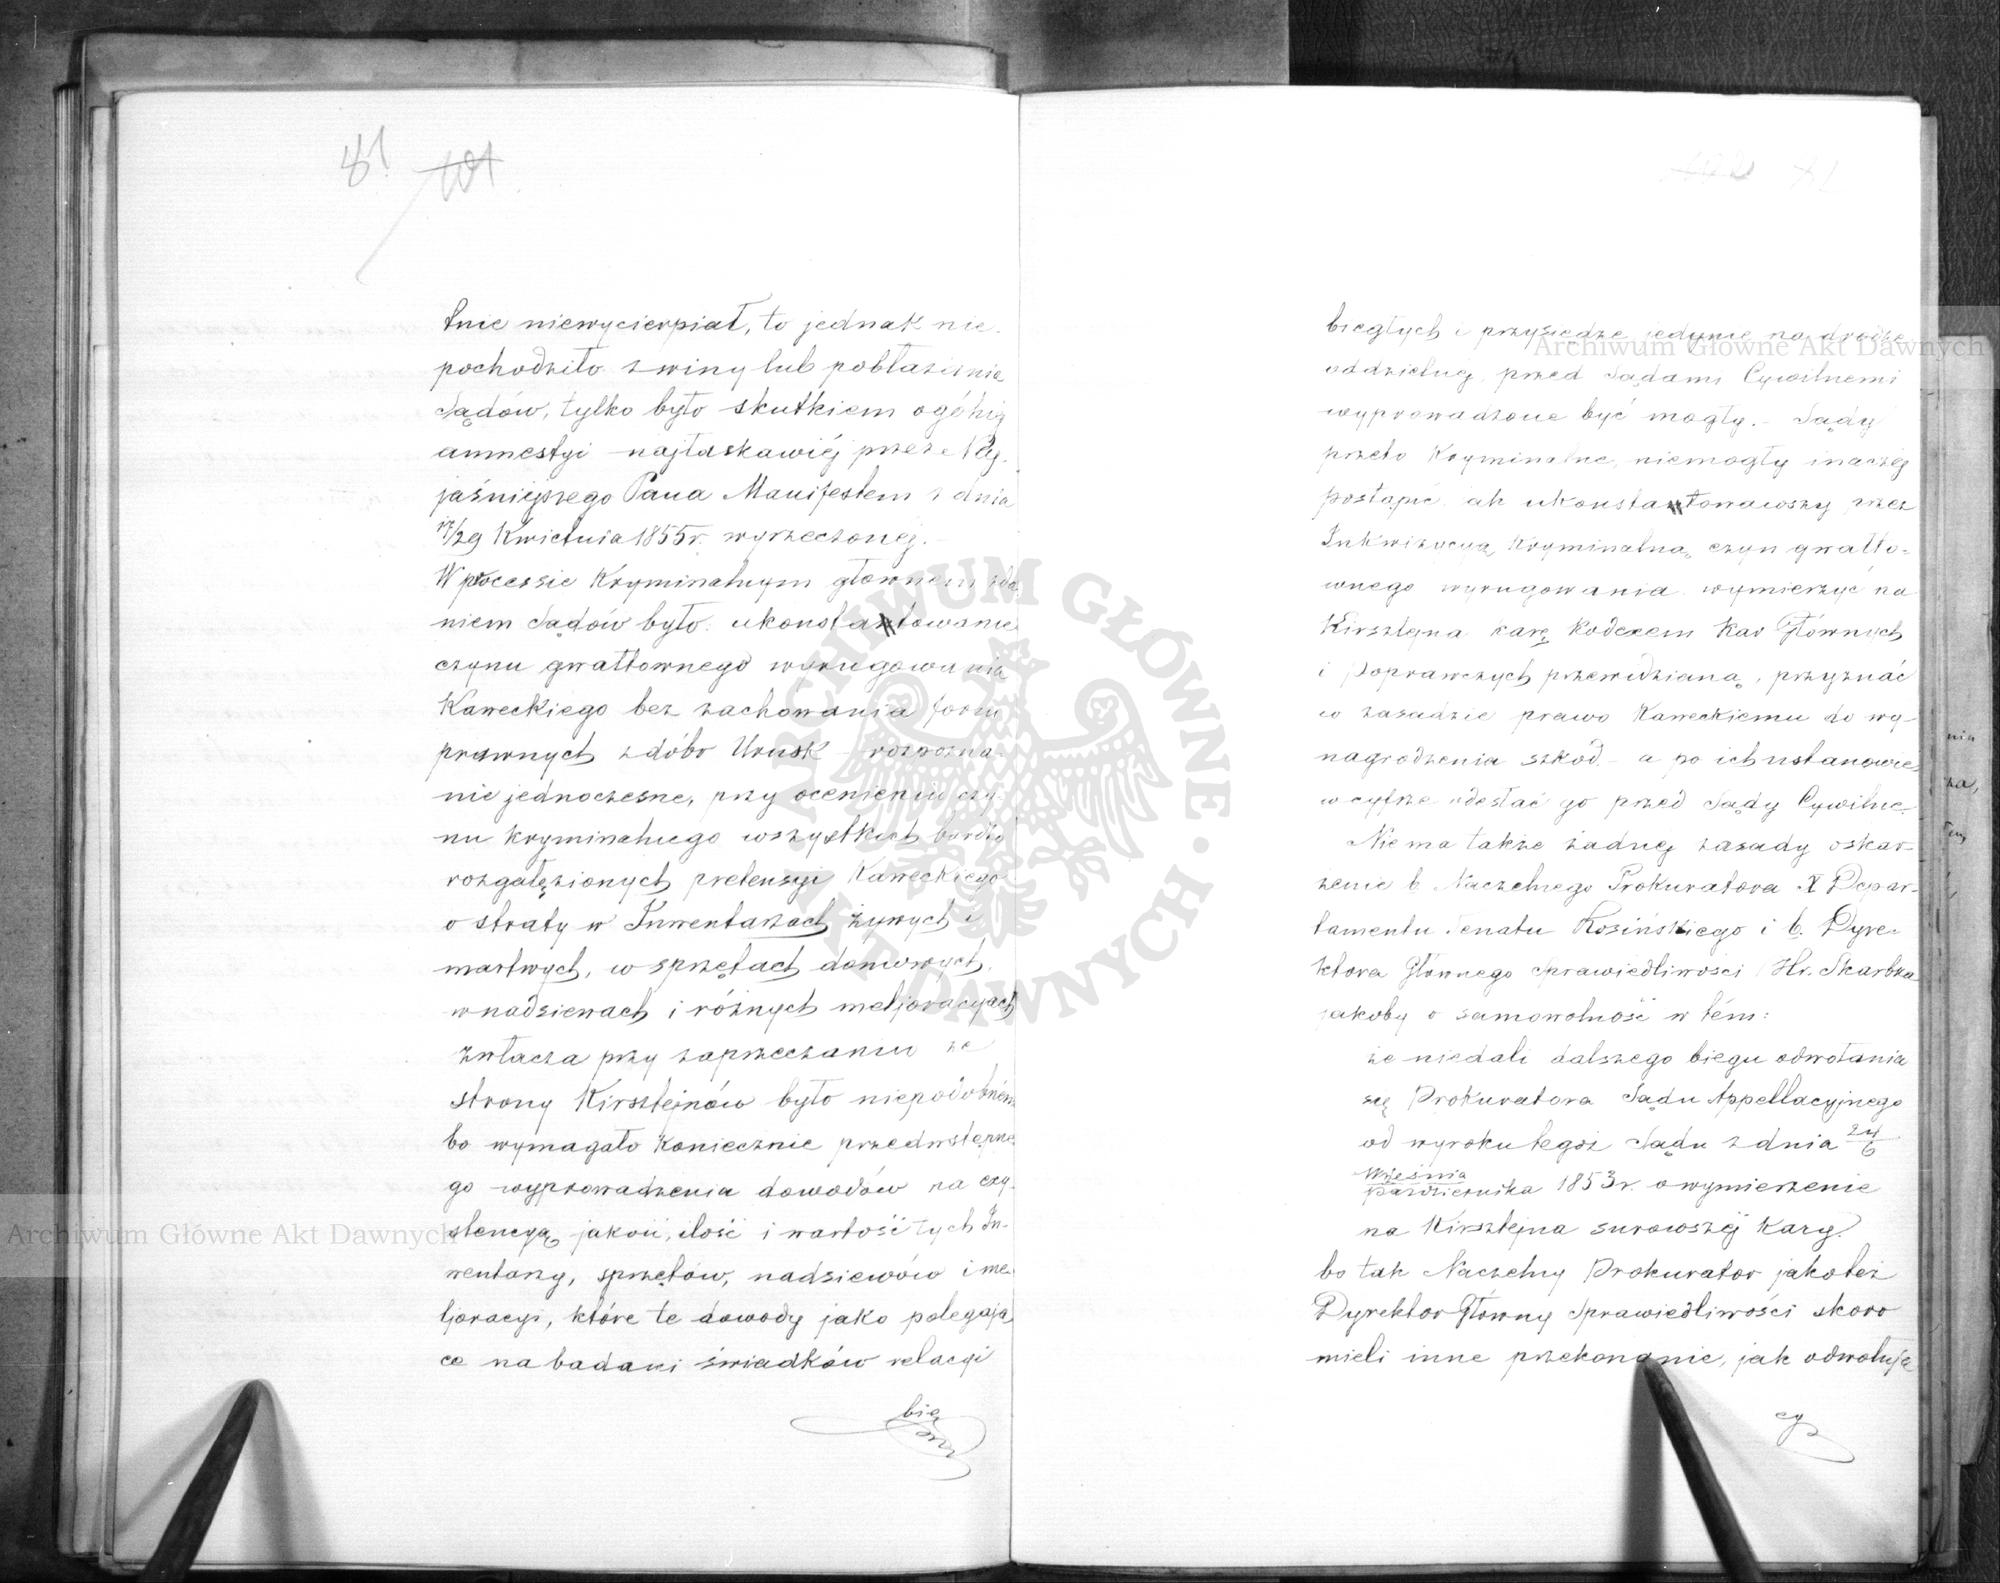 81 101
tnie niewycierpiał, to jednak nie
pochodziło z winy lub pobłażenia
Sądów, tylko było skutkiem ogólnéj
amnestyi najłaskawiéj przez Naj-
jaśniejszego Pana Manifestem z dnia
17/29 Kwietnia 1855 r. wyrzeczonéj.
W processie Kryminalnym głownem zda
niem Sądów było ukonstatowanie
czynu gwałtownego wyrugowania
Kaweckiego bez zachowania form
prawnych z dóbr Urusk - rozpozna-
nie jednoczesne, przy ocenieniu czy-
nu kryminalnego wszystkich bardzo
rozgałęzionych pretensyi Kaweckiego
o straty w Inwentarzach żywych i
martwych, w sprzętach domowych,
w nadsiewach i różnych meljoracyach
zwłacza przy zaprzeczaniu ze
strony Kirsztejnów było niepodobném
bo wymagało koniecznie przedwstępne
go wyprowadzenia dowodów na exy-
stencyą, jakość, ilość i wartość tych In-
wentarzy, sprzętów, nadsiewów i me
ljoracyi, które te dowody jako polegają
ce na badani świadków relacyi
bie
Archiwum Główne Akt Dawnych
ARCHIWUM GŁÓWNE AKT DAWNYCH
Archiwum Główne Akt Dawnych
biegłych i przysiędze jedynie na drodze
oddzielnéj, przed Sądami Cywilnemi
wyprowadzone być mogły. - Sądy
przeto Kryminalne, niemogły inaczéj
postąpić jak ukonstatowawszy przez
Inkwizycyą Kryminalną czyn gwałto-
wnego wyrugowania wymierzyć na
Kirsztejna karę Kodexem Kar Głównych
i Poprawczych przewidzianą, przyznać
w zasadzie prawo Kaweckiemu do wy-
nagrodzenia szkód - a po ich ustanowie
w cyfrze odesłać go przed Sądy Cywilne.
Nie ma także żadnéj zasady oskar-
żenie b. Naczelnego Prokuratora X Depar-
tamentu Senatu Kosińskiego i b. Dyre-
ktora Głównego Sprawiedliwości Hr. Skarbka
jakoby o samowolność w tém:
że niedali dalszego biegu odwołania
się Prokuratora Sądu Appellacyjnego
od wyroku tegoż Sądu z dnia 24/6
Września/Października 1853 r. o wymierzenie
na Kirsztejna surowszéj kary.
bo tak Naczelny Prokurator jakoteż
Dyrektor Główny Sprawiedliwości skoro
mieli inne przekonanie, jak odwołują
cy